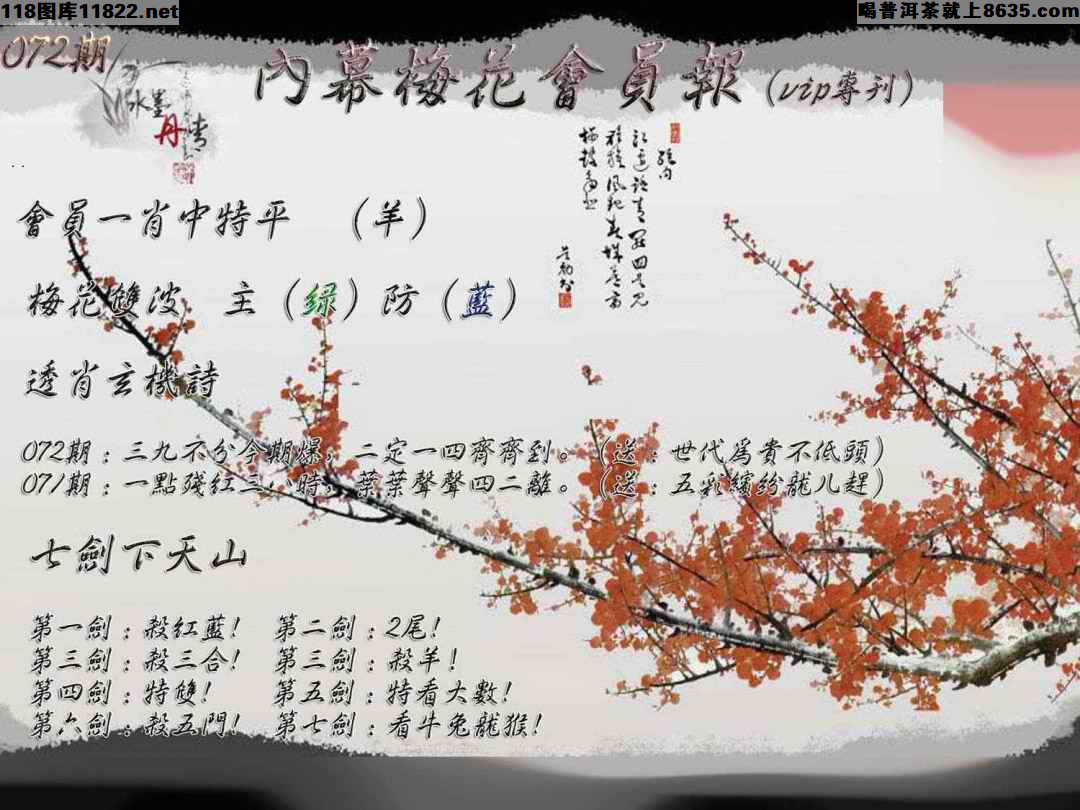 118图库11822.net
喝普洱茶就上8635.com
072期
內幕梅花會員報（vip專刊）
水墨
丹青
會員一肖中特平 （羊）
梅花雙波 主（绿）防（藍）
透肖玄機詩
072期：三九不分今期爆，二定一四齊齊到。（送：世代為貴不低頭）
071期：一點殘紅三八時，葉葉聲聲四二離。（送：五彩繽紛龍儿趕）
七劍下天山
第一劍：殺紅藍！ 第二劍：2尾！
第三劍：殺三合！ 第三劍：殺羊！
第四劍：特雙！ 第五劍：特看大數！
第六劍：殺五門！ 第七劍：看牛兔龍猴！